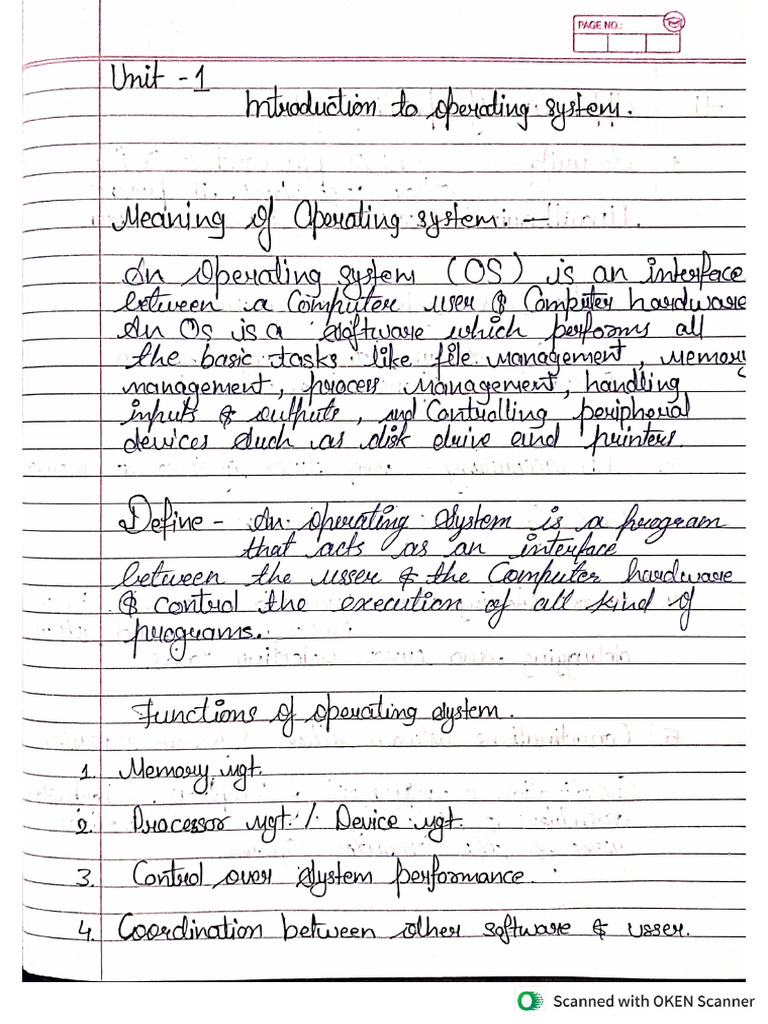 PAGE NO.:
Unit - 1
Introduction to operating system.
Meaning of Operating system: -
An Operating system (OS) is an interface
between a Computer user & Computer hardware
An Os is a software which performs all
the basic tasks like file management, memory
management, process management, handling
inputs & outputs, and Controlling peripheral
devices such as disk drive and printers.
Define - An operating system is a program
that acts as an interface
between the usser & the Computer hardware
& control the execution of all kind of
programs.
Functions of operating system.
1. Memory mgt.
2. Processor mgt. / Device mgt.
3. Control over system performance.
4. Coordination between other software & usser.
Scanned with OKEN Scanner